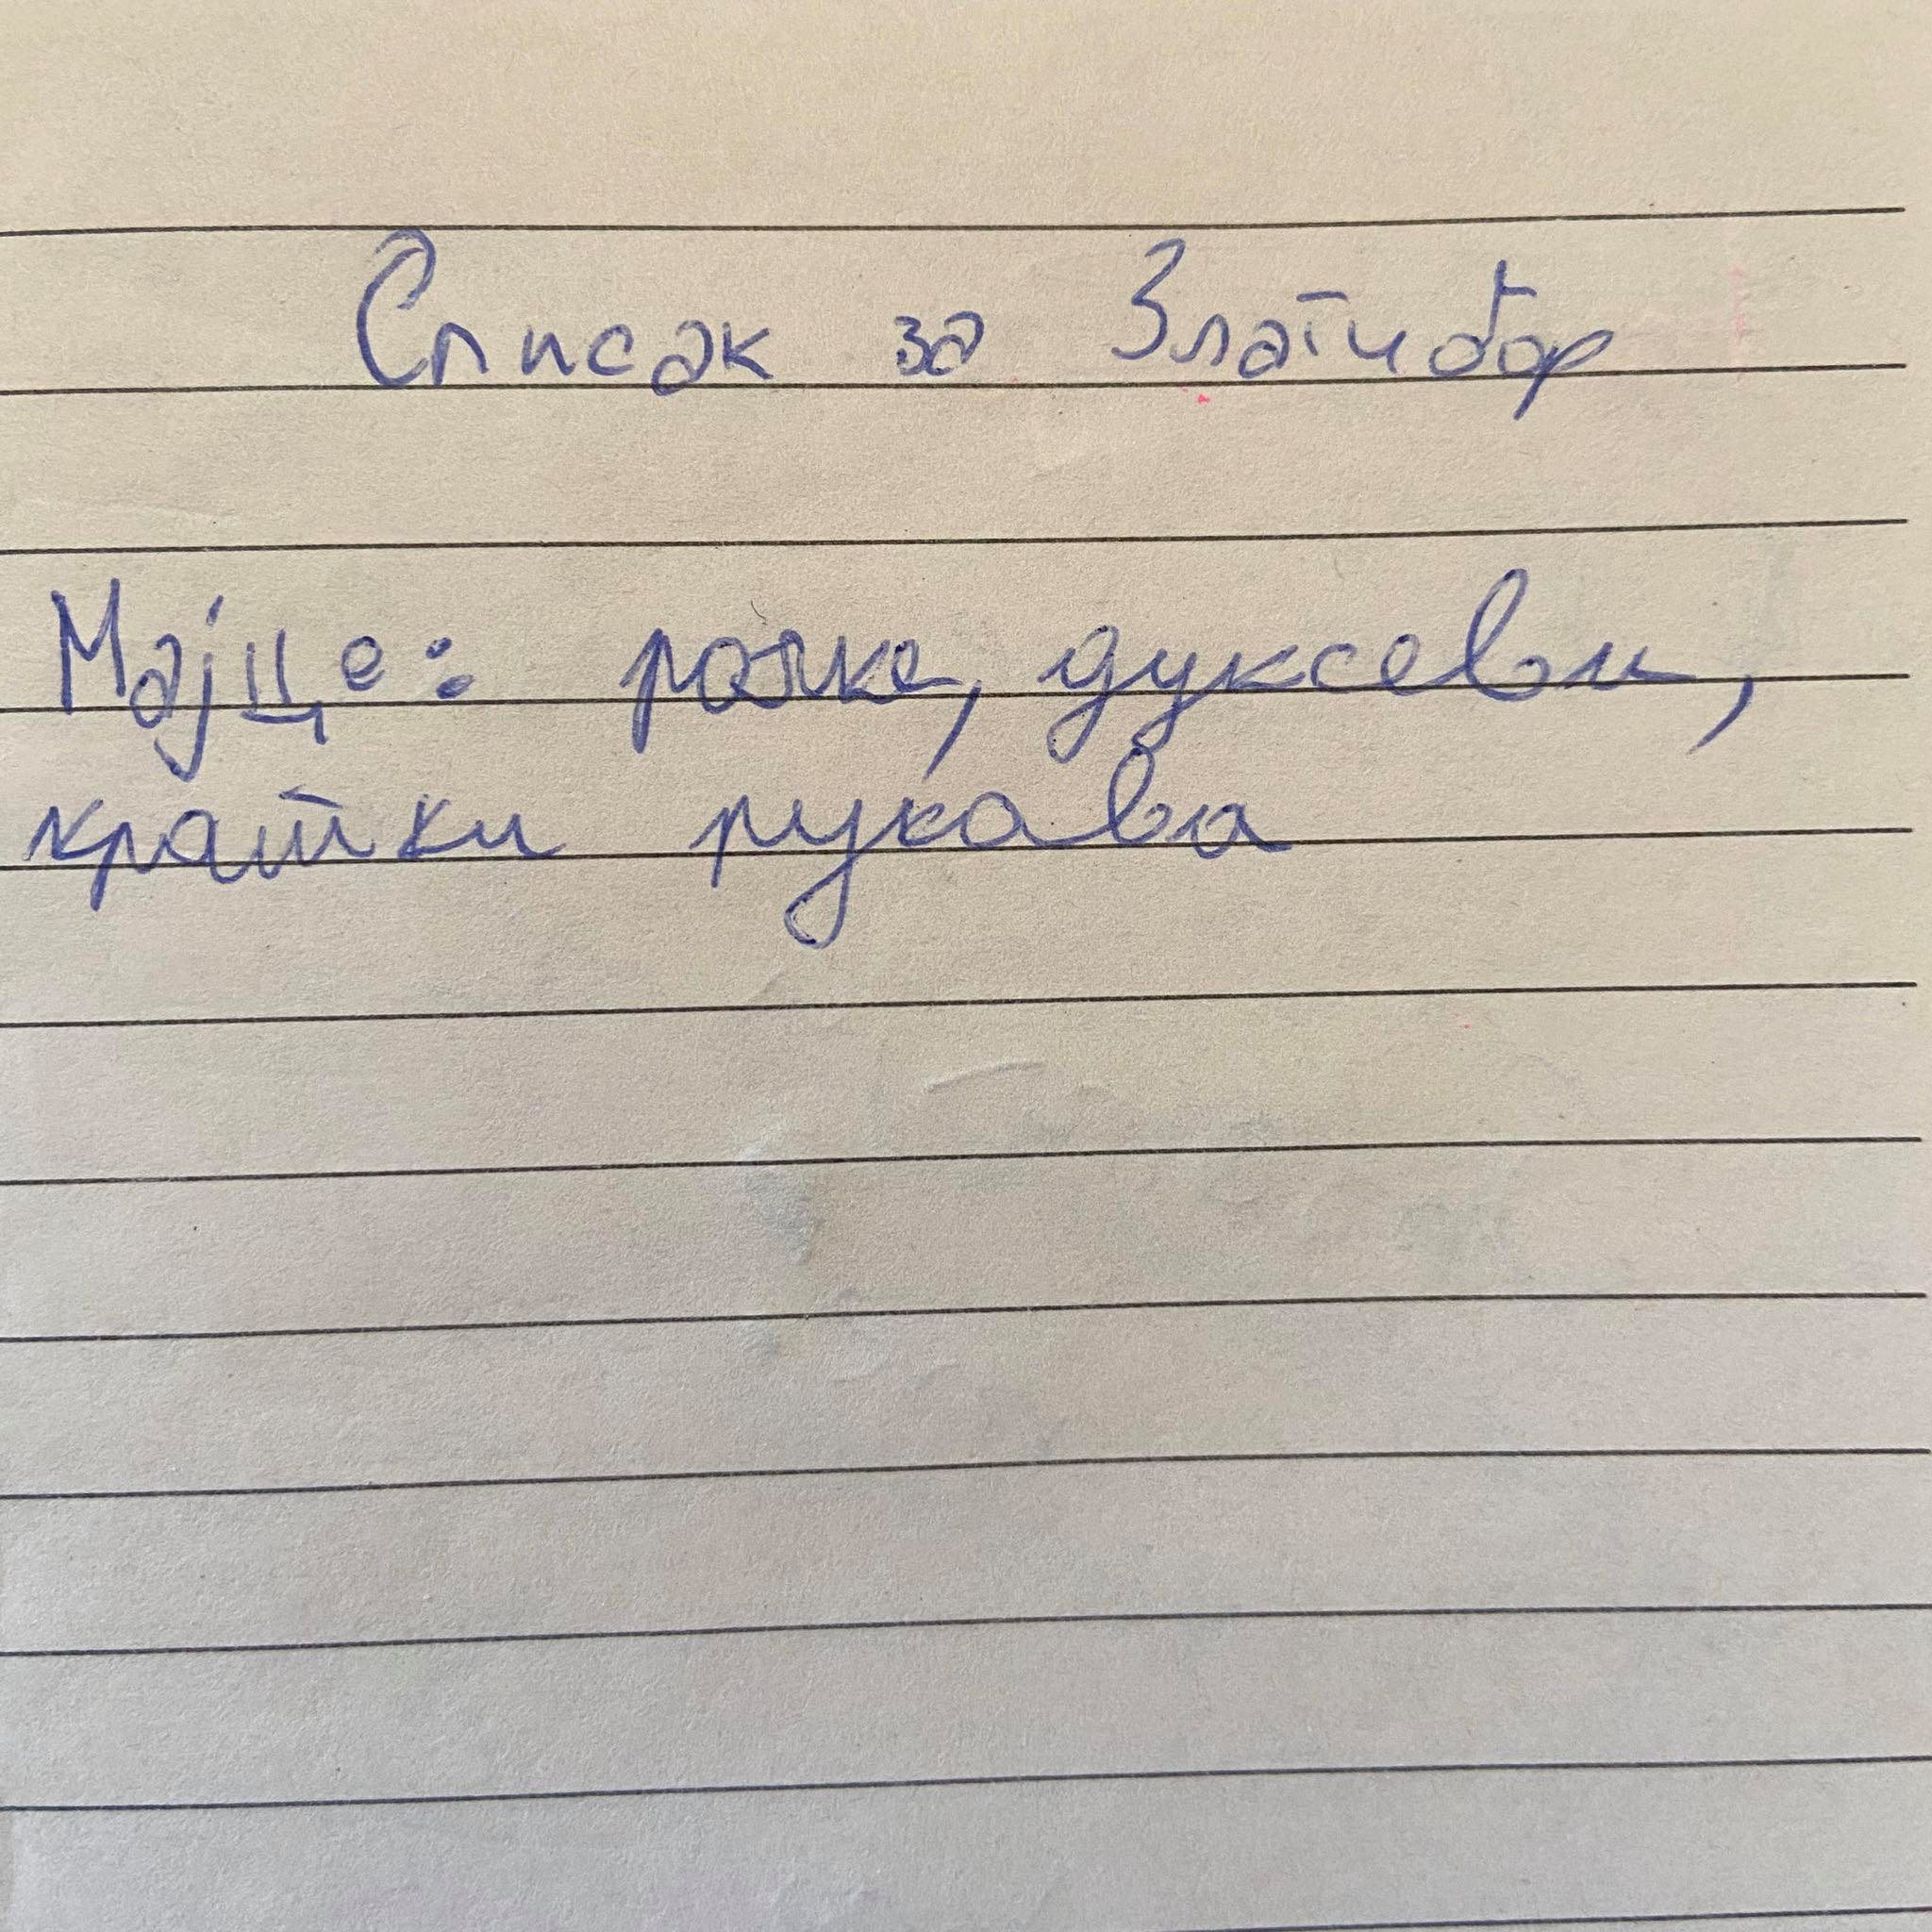 Списак за Златибор
Мајце: ролке, дуксеви,
кратки рукава